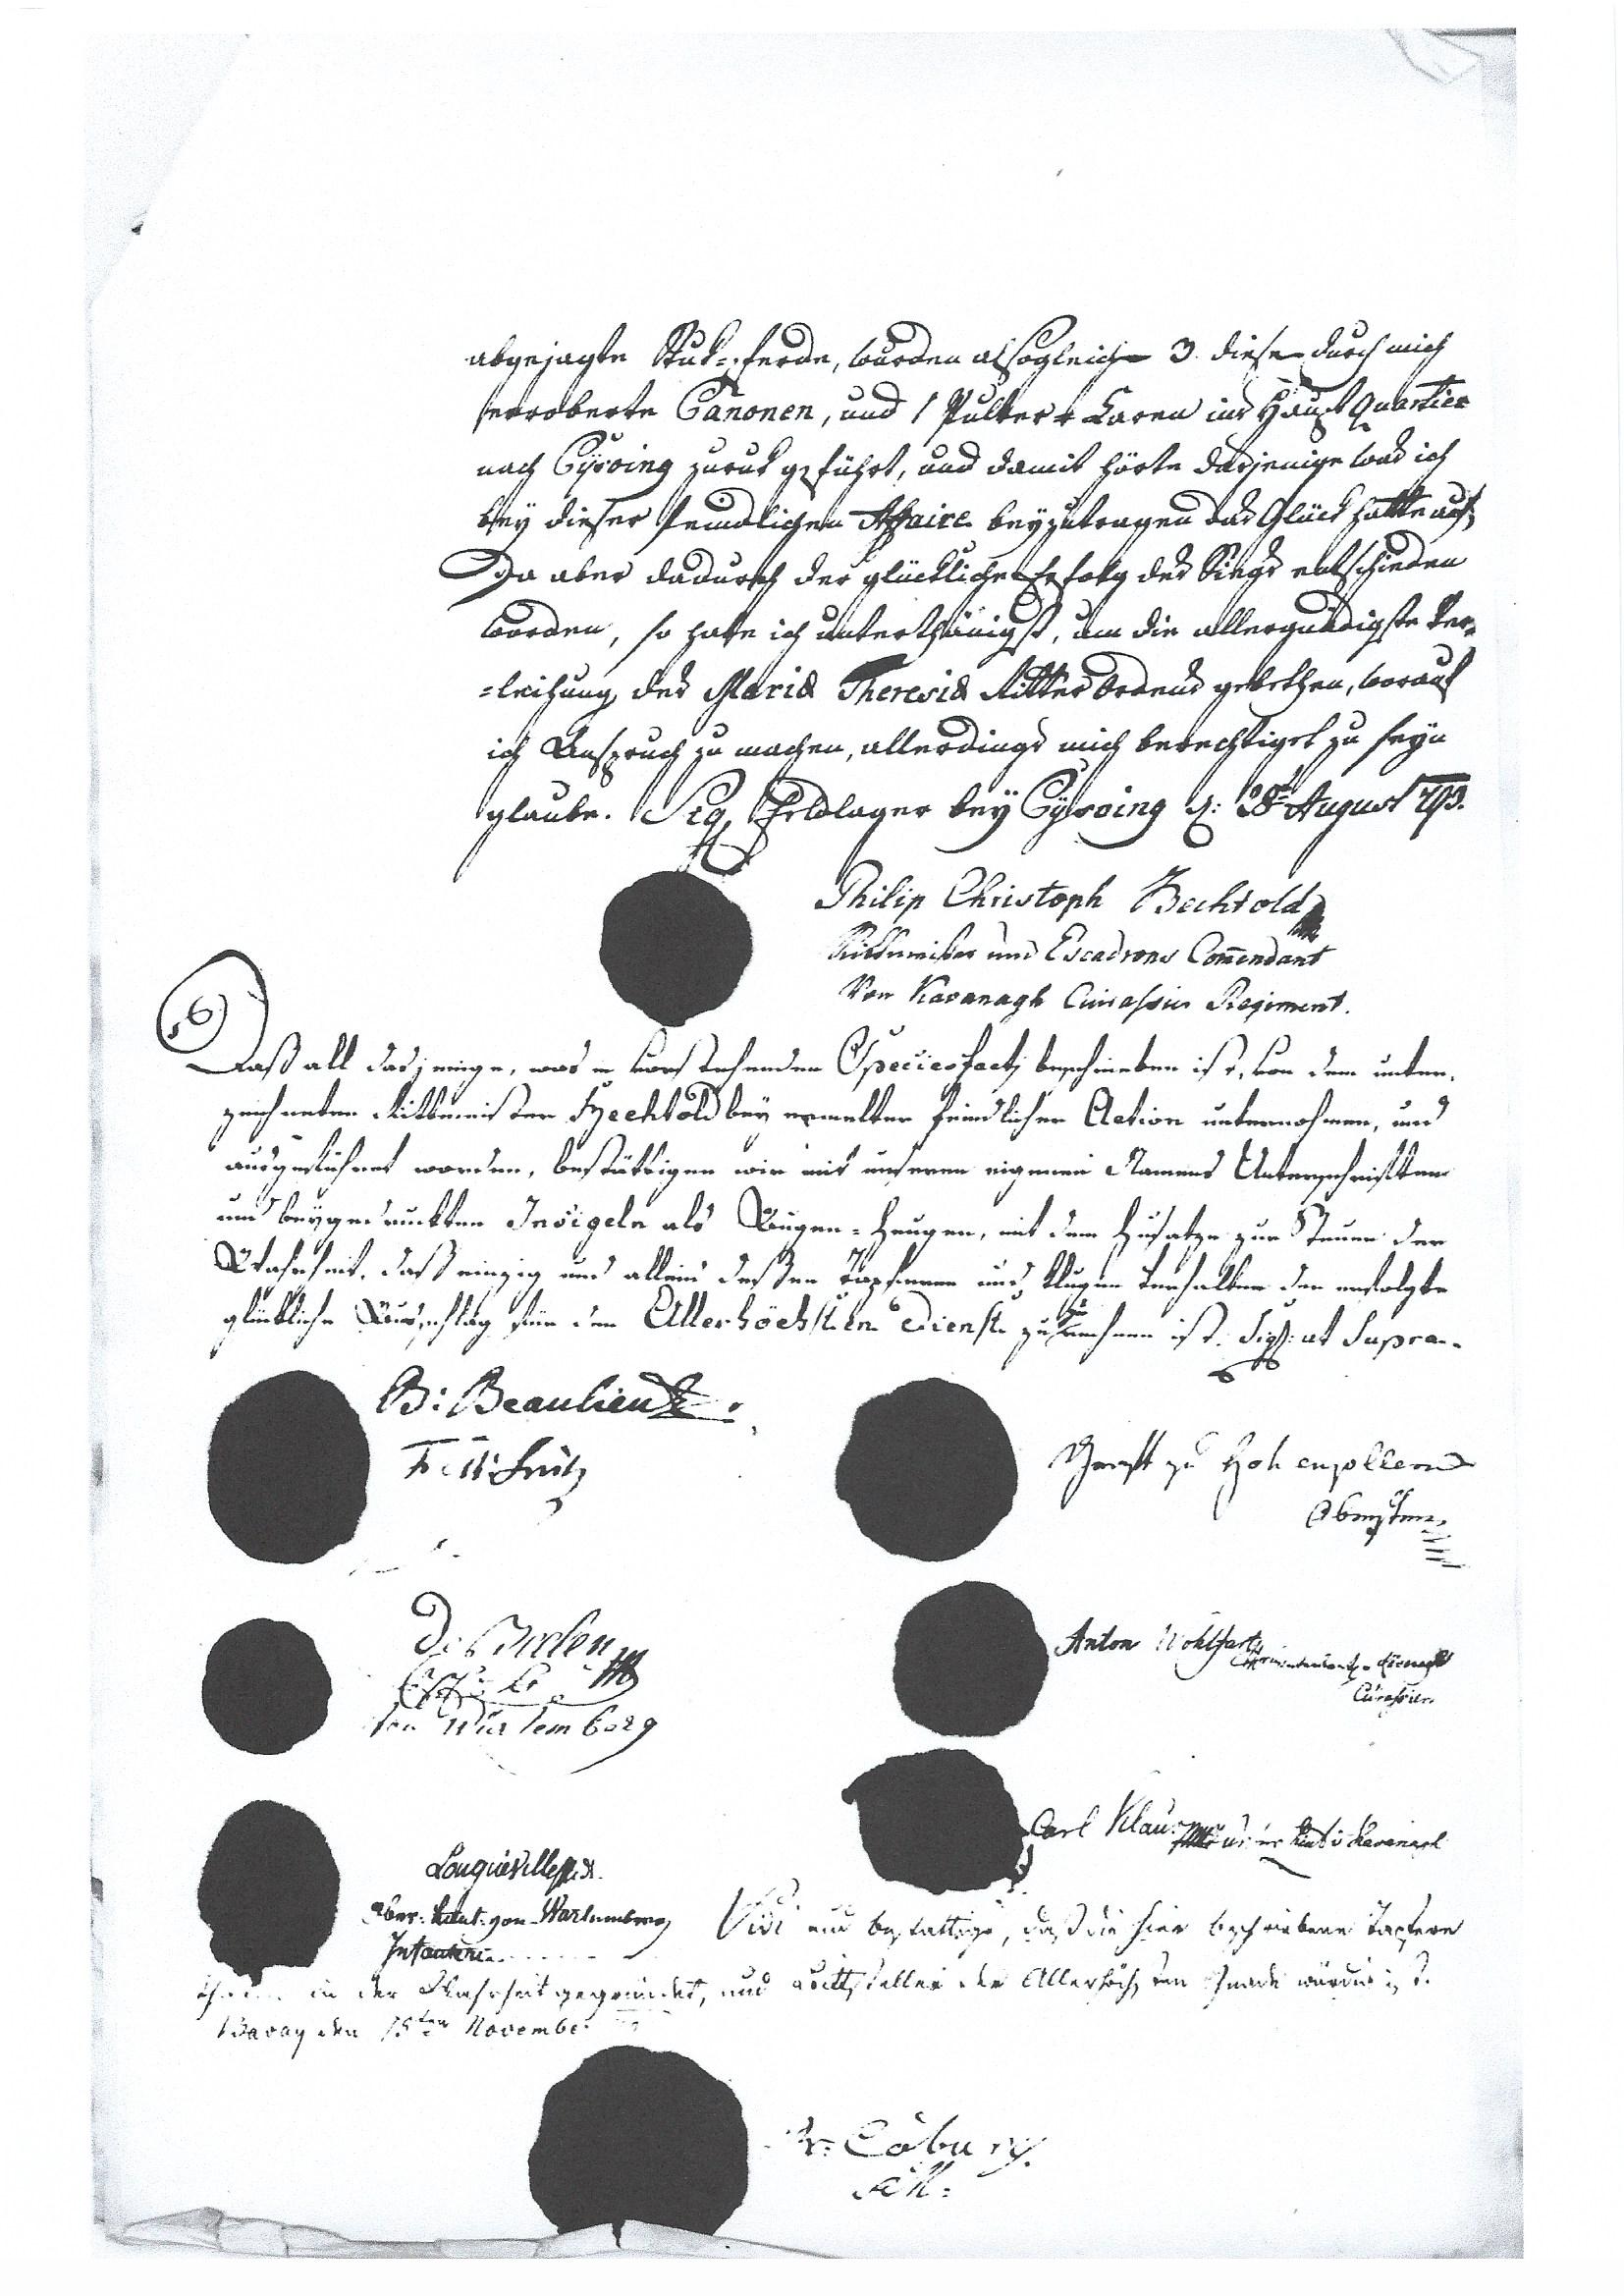 abgejagte Stuk-Pferde, wurden alsogleich 3. diese durch mich
eroberte Canonen, und 1 Pulver Karen ins Haupt Quartier
nach Cysoing zuruk geführt, und damit hörte dasjenige was ich
bey dieser feindlichen Affaire beyzutragen das Glück hatte auf,
Da aber dadurch der glückliche Erfolg des Siegs entschieden
worden, so habe ich unterthänigst, um die allergnädigste Ver-
=leihung des Maria Theresia Ritter Ordens gebethen, worauf
ich Anspruch zu machen, allerdings mich berechtiget zu seyn
glaube. Sig. Feldlager bey Cysoing d: 28t August 793.
Philip Christoph Bechtold
Rittmeister und Escadrons Com̅endant
Von Kavanagh Cuirassier Regiment.
Daß all dasjenige, was in vorstehenden Speciesfacti beschrieben ist, von dem unter-
zeichneten Rittmeister Bechtold bey ermelter feindlicher Action unternohmen, und
ausgeführet worden, bestättigen wir mit unseren eigenen Namens Unterschriften
und beygedruckten Insigeln als Augen-Zeugen, mit dem Zusatze zur Steuer der
Wahrheit, daß einzig und allein dessen Tapferen und klugen Verhalten der erfolgte
glückliche Ausschlag für den Allerhöchsten Dienst zuzurechnen ist. Sig: ut Supra.
B: Beaulieu
Hohenzollern
Obrister
von Würtemberg
Anton Wohlfart
Curassier
Carl
Kavanagh
Longueville
Ober: Leut: von Würtemberg
Infanterie
Vidi und bestättige, daß die hier beschriebene Tapfere
in der Wahrheit gegründet, und Bittsteller der Allerhöchsten Gnade würdig ist.
Bavay den 15ten November
Pr: Coburg
FM: